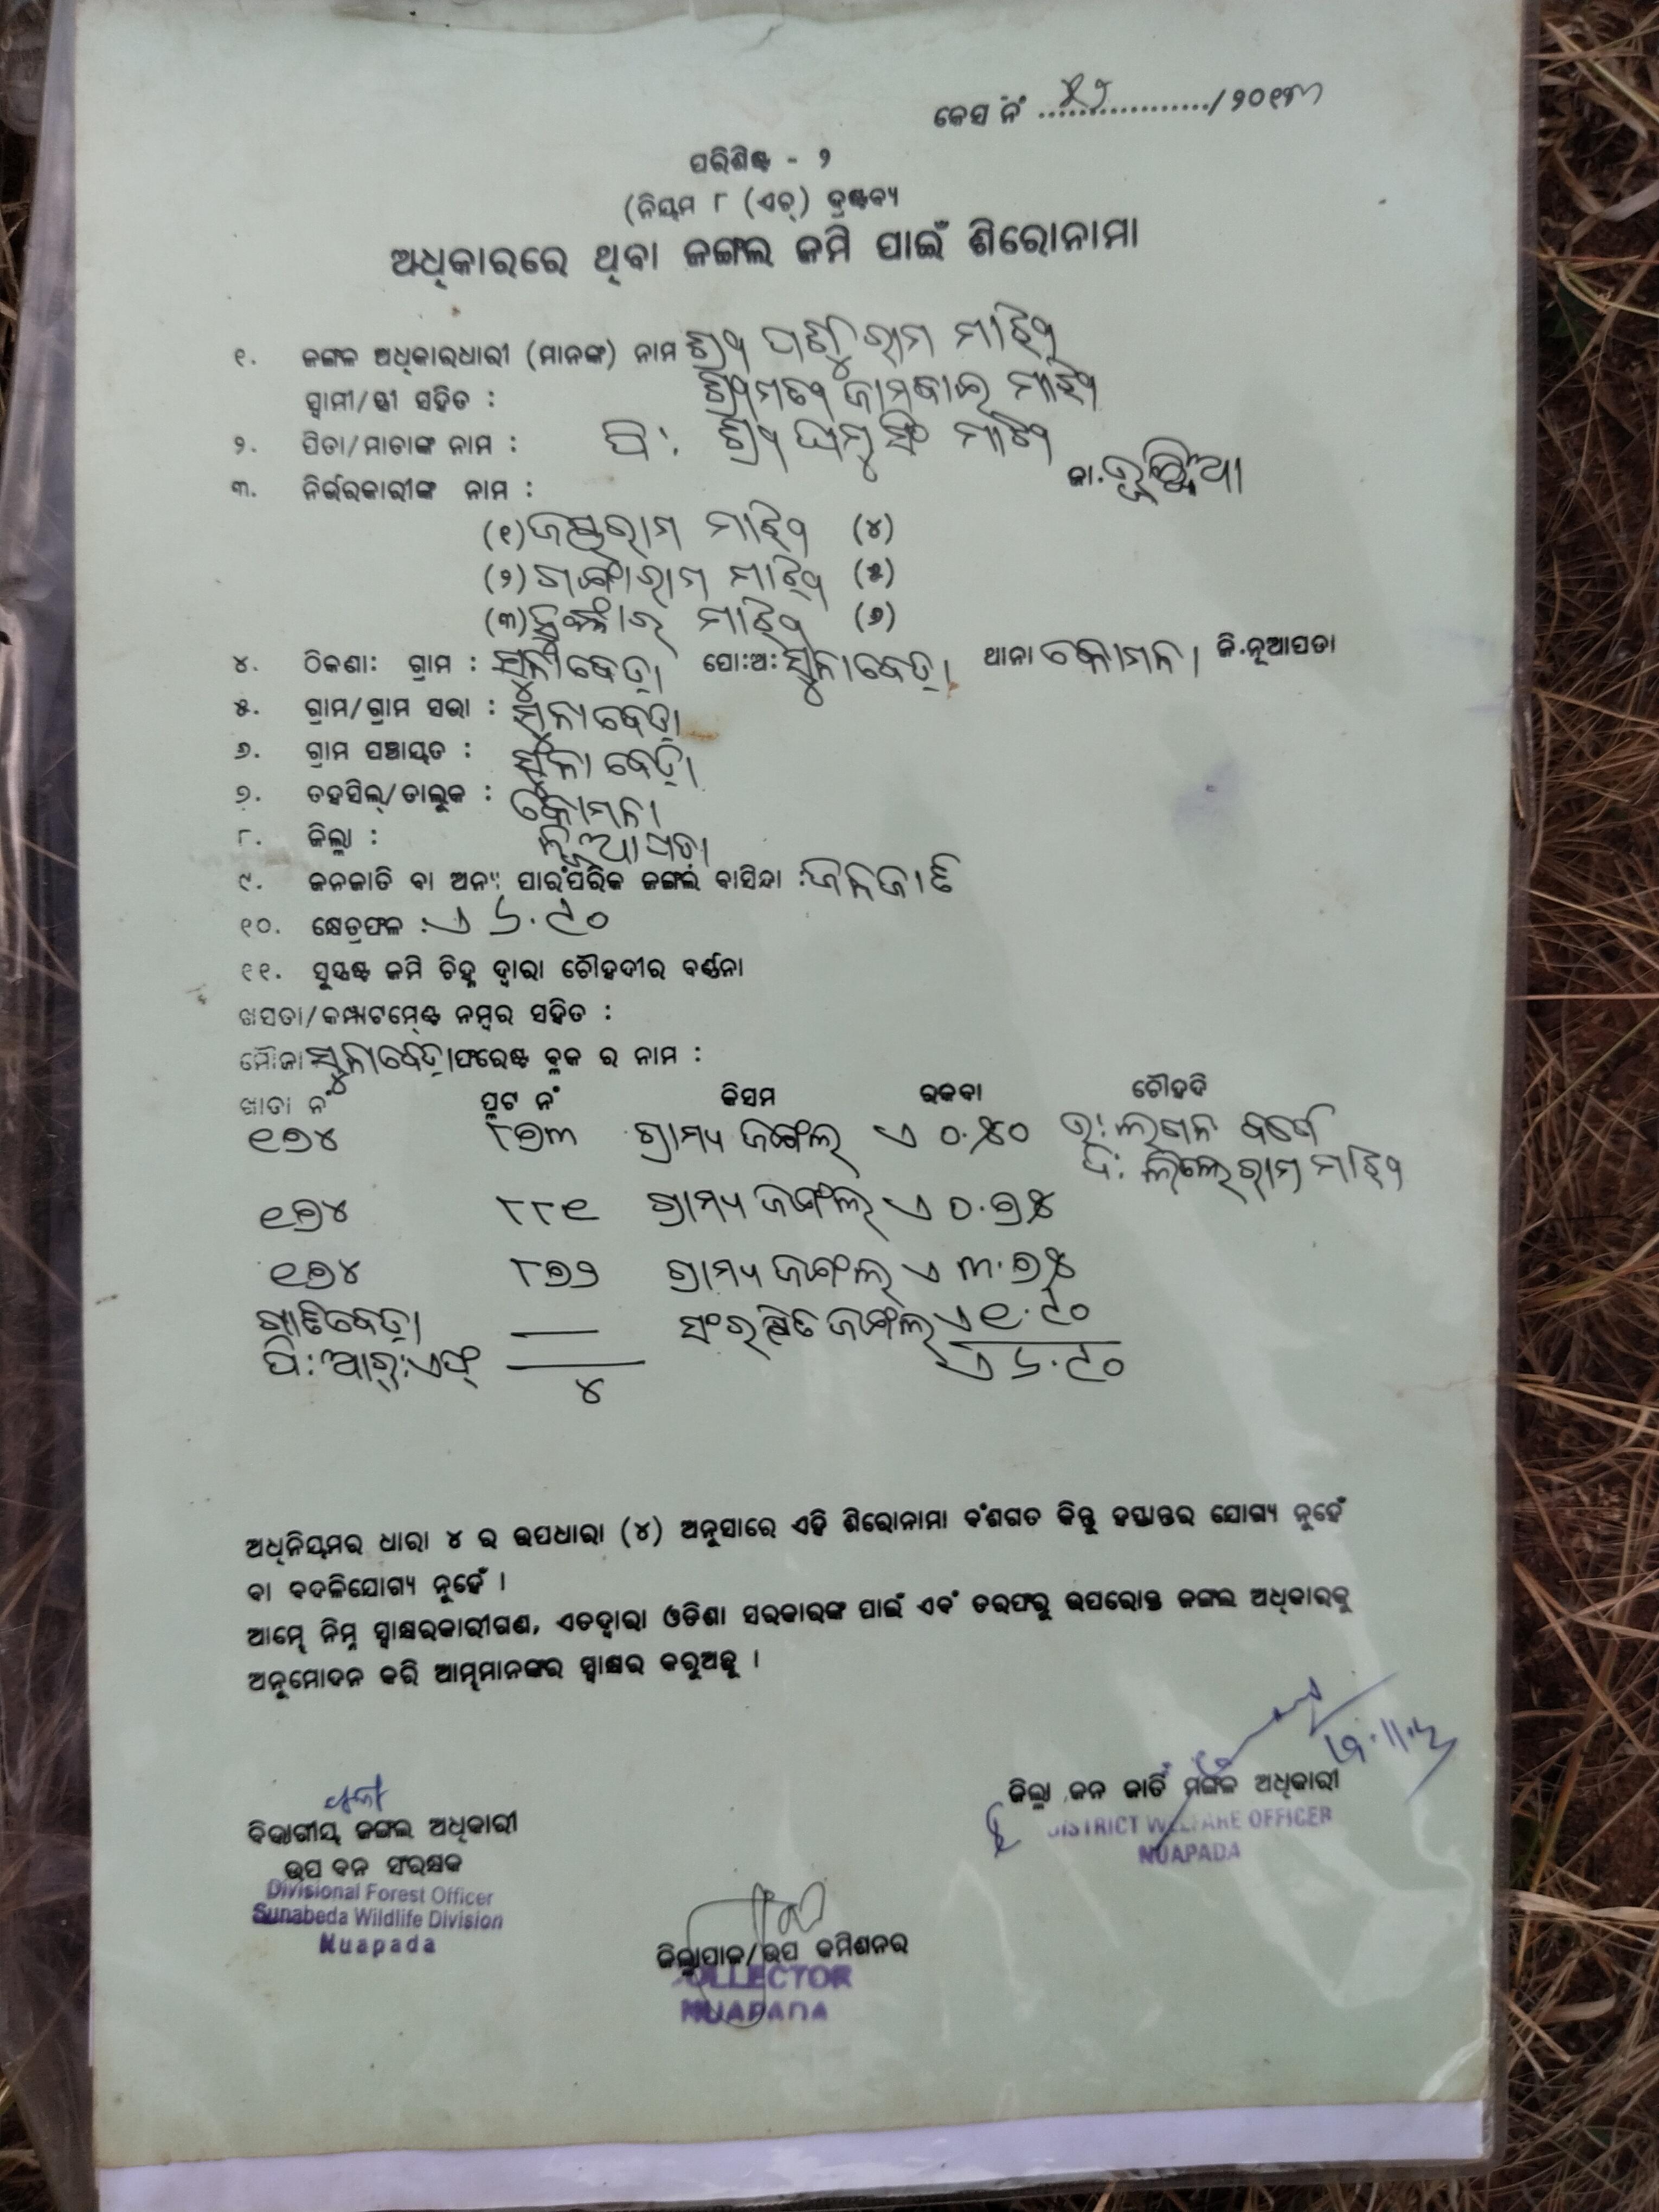 କେସ ନଂ ................/ ୨୦୧୩
ପରିଶିଷ୍ଟ - ୨
(ନିୟମ ୮ (ଏଚ୍) ଦ୍ରଷ୍ଟବ୍ୟ
ଅଧିକାରରେ ଥିବା ଜଙ୍ଗଲ ଜମି ପାଇଁ ଶିରୋନାମା
୧. ଜଙ୍ଗଲ ଅଧିକାରଧାରୀ (ମାନଙ୍କ) ନାମ ଶ୍ରୀ ରାମ ମାଝି
ସ୍ୱାମୀ/ସ୍ତ୍ରୀ ସହିତ : ଶ୍ରୀମତୀ ଜାମବାଇ ମାଝି
୨. ପିତା/ମାତାଙ୍କ ନାମ : ପି: ଶ୍ରୀ ମାଝି
ଜା.
୩. ନିର୍ଭରକାରୀଙ୍କ ନାମ :
(୧) ଜୟରାମ ମାଝି (୪)
(୨) ଗଙ୍ଗାରାମ ମାଝି (୫)
(୩) ମାଝି (୬)
୪. ଠିକଣା: ଗ୍ରାମ : ସୁନାବେଡ଼ା ପୋ:ଅ: ସୁନାବେଡ଼ା ଥାନା କୋମନା ଜି.ନୂଆପଡା
୫. ଗ୍ରାମ/ଗ୍ରାମ ସଭା : ସୁନାବେଡ଼ା
୬. ଗ୍ରାମ ପଞ୍ଚାୟତ : ସୁନାବେଡ଼ା
୭. ତହସିଲ୍/ତାଲୁକ : କୋମନା
୮. ଜିଲ୍ଲା : ନୂଆପଡ଼ା
୯. ଜନଜାତି ବା ଅନ୍ୟ ପାରଂପରିକ ଜଙ୍ଗଲ ବାସିନ୍ଦା : ଜନଜାତି
୧୦. କ୍ଷେତ୍ରଫଳ : ଏ ୬.୯୦
୧୧. ସୁସ୍ପଷ୍ଟ ଜମି ଚିହ୍ନ ଦ୍ୱାରା ଚୌହଦୀର ବର୍ଣ୍ଣନା
ଖସଡା/କମ୍ପାଟମେଣ୍ଟ ନମ୍ବର ସହିତ :
ମୌଜା ସୁନାବେଡ଼ା ଫରେଷ୍ଟ ବ୍ଲକ ର ନାମ :
ଖାତା ନଂ ପ୍ଲଟ ନଂ କିସମ ରକବା ଚୌହଦି
୧୭୪ ୮୭୩ ଗ୍ରାମ୍ୟ ଜଙ୍ଗଲ ଏ ୦.୫୦ ଉ:
ଦ: ରାମ ମାଝି
୧୭୪ ୮୮୧ ଗ୍ରାମ୍ୟ ଜଙ୍ଗଲ ଏ ୦.୭୫
୧୭୪ ୮୭୨ ଗ୍ରାମ୍ୟ ଜଙ୍ଗଲ ଏ ୩.୭୫
ଖାତିବେଡ଼ା — ସଂରକ୍ଷିତ ଜଙ୍ଗଲ ଏ ୧.୯୦
ପି:ଆର୍:ଏଫ୍ ୪ ଏ ୬.୯୦
ଅଧିନିୟମର ଧାରା ୪ ର ଉପଧାରା (୪) ଅନୁସାରେ ଏହି ଶିରୋନାମା ବଂଶଗତ କିନ୍ତୁ ହସ୍ତାନ୍ତର ଯୋଗ୍ୟ ନୁହେଁ
ବା ବଦଳିଯୋଗ୍ୟ ନୁହେଁ ।
ଆମ୍ଭେ ନିମ୍ନ ସ୍ୱାକ୍ଷରକାରୀଗଣ, ଏତଦ୍ୱାରା ଓଡିଶା ସରକାରଙ୍କ ପାଇଁ ଏବଂ ତରଫରୁ ଉପରୋକ୍ତ ଜଙ୍ଗଲ ଅଧିକାରକୁ
ଅନୁମୋଦନ କରି ଆମ୍ଭମାନଙ୍କର ସ୍ୱାକ୍ଷର କରୁଅଛୁ ।
ଜିଲ୍ଲା ଜନ ଜାତି ମଙ୍ଗଳ ଅଧିକାରୀ
DISTRICT WELFARE OFFICER
NUAPADA
ବିଭାଗୀୟ ଜଙ୍ଗଲ ଅଧିକାରୀ
ଉପ ବନ ସଂରକ୍ଷକ
Divisional Forest Officer
Sunabeda Wildlife Division
Nuapada
ଜିଲ୍ଲାପାଳ/ଉପ କମିଶନର
COLLECTOR
NUAPADA